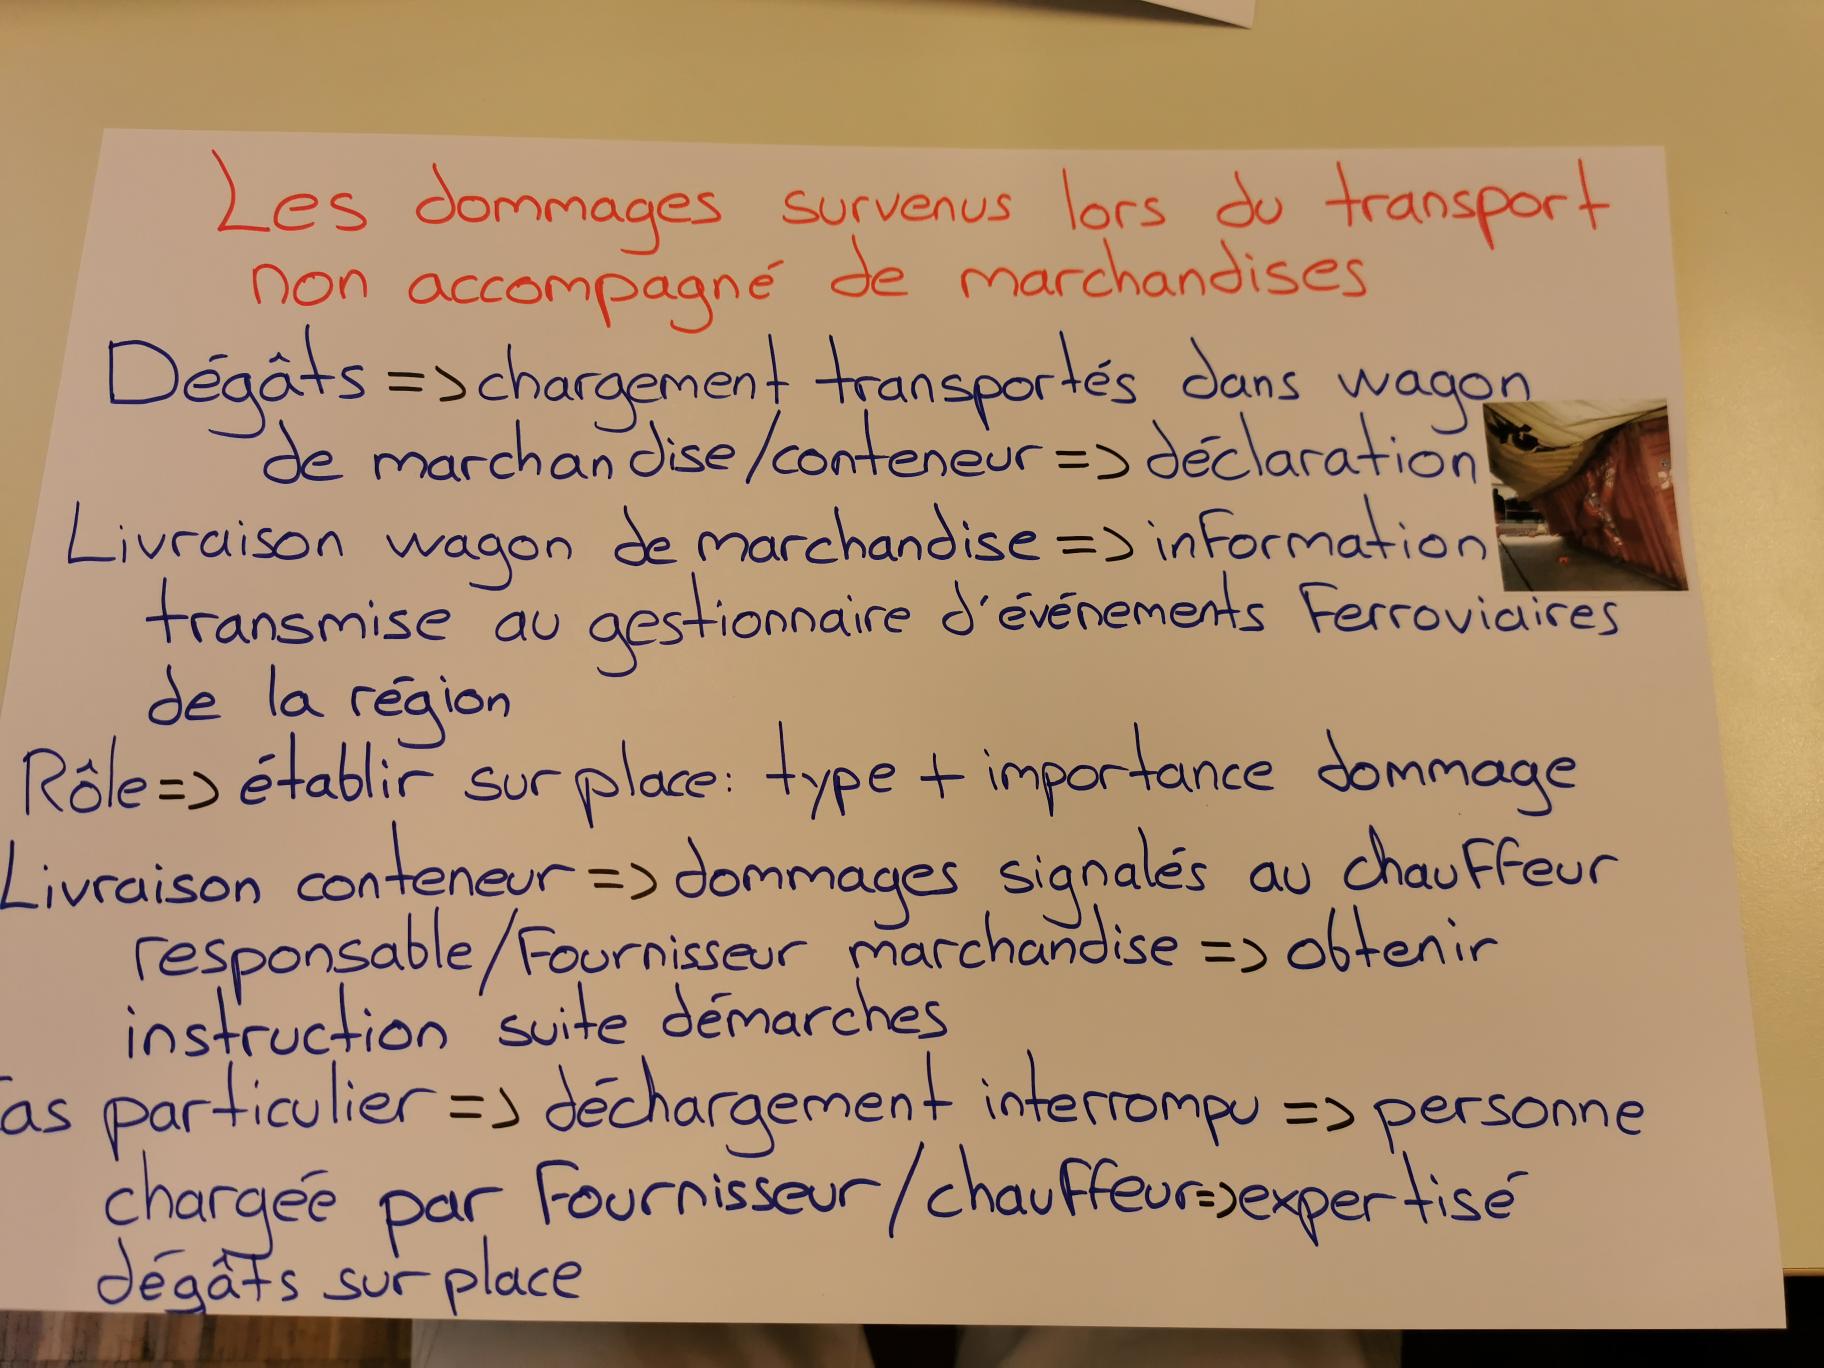 Les dommages survenus lors du transport
non accompagné de marchandises
Dégâts => chargement transportés dans wagon
de marchandise/conteneur => déclaration
Livraison wagon de marchandise => information
transmise au gestionnaire d'événements Ferroviaires
de la région
Rôle => établir sur place: type + importance dommage
Livraison conteneur => dommages signalés au chauffeur
responsable/Fournisseur marchandise => obtenir
instruction suite démarches
Cas particulier => déchargement interrompu => personne
chargée par Fournisseur/chauffeur => expertisé
dégâts sur place